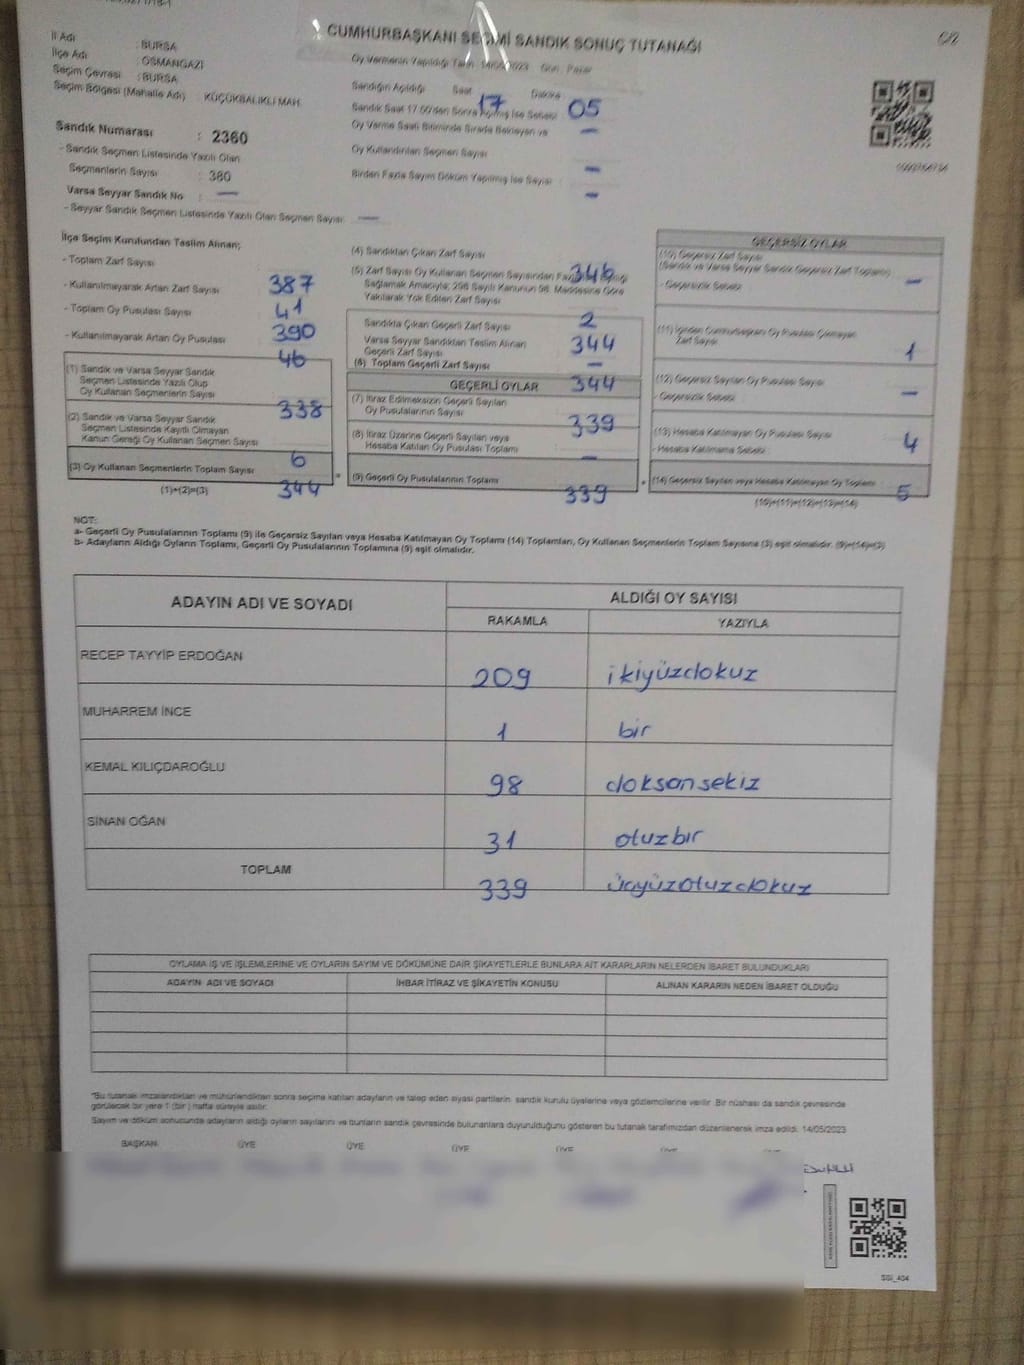 CUMHURBAŞKANI SEÇİMİ SANDIK SONUÇ TUTANAĞI
İl Adı : BURSA
İlçe Adı : OSMANGAZİ
Seçim Çevresi : BURSA
Seçim Bölgesi (Mahalle Adı) : KÜÇÜKBALIKLI MAH.
Sandık Numarası : 2360
- Sandık Seçmen Listesinde Yazılı Olan
Seçmenlerin Sayısı : 380
Varsa Seyyar Sandık No : —
- Seyyar Sandık Seçmen Listesinde Yazılı Olan Seçmen Sayısı: —
Oy Vermenin Yapıldığı Tarih : 14/05/2023 Gün : Pazar
Sandığın Açıldığı Saat 17 Dakika 05
Sandık Saat 17.00'den Sonra Açılmış İse Sebebi —
Oy Verme Saati Bitiminde Sırada Bekleyen ve
Oy Kullandırılan Seçmen Sayısı —
Birden Fazla Sayım Döküm Yapılmış İse Sayısı : —
İlçe Seçim Kurulundan Teslim Alınan;
- Toplam Zarf Sayısı : 387
- Kullanılmayarak Artan Zarf Sayısı : 41
- Toplam Oy Pusulası Sayısı : 390
- Kullanılmayarak Artan Oy Pusulası : 46
(1) Sandık ve Varsa Seyyar Sandık
Seçmen Listesinde Yazılı Olup
Oy Kullanan Seçmenlerin Sayısı 338
(2) Sandık ve Varsa Seyyar Sandık
Seçmen Listesinde Kayıtlı Olmayan
Kanun Gereği Oy Kullanan Seçmen Sayısı 6
(3) Oy Kullanan Seçmenlerin Toplam Sayısı 344
(1)+(2)=(3)
(4) Sandıktan Çıkan Zarf Sayısı 346
(5) Zarf Sayısı Oy Kullanan Seçmen Sayısından Fazla
Sağlamak Amacıyla; 298 Sayılı Kanunun 98. Maddesine Göre
Yakılarak Yok Edilen Zarf Sayısı 2
Sandıkta Çıkan Geçerli Zarf Sayısı 344
Varsa Seyyar Sandıktan Teslim Alınan
Geçerli Zarf Sayısı —
(6) Toplam Geçerli Zarf Sayısı 344
GEÇERLİ OYLAR
(7) İtiraz Edilmeksizin Geçerli Sayılan
Oy Pusulalarının Sayısı 339
(8) İtiraz Üzerine Geçerli Sayılan veya
Hesaba Katılan Oy Pusulası Toplamı —
(9) Geçerli Oy Pusulalarının Toplamı 339
GEÇERSİZ OYLAR
(10) Geçersiz Zarf Sayısı
(Sandık ve Varsa Seyyar Sandık Geçersiz Zarf Toplamı)
- Geçersizlik Sebebi —
(11) İçinden Cumhurbaşkanı Oy Pusulası Çıkmayan
Zarf Sayısı 1
(12) Geçersiz Sayılan Oy Pusulası Sayısı
- Geçersizlik Sebebi —
(13) Hesaba Katılmayan Oy Pusulası Sayısı
- Hesaba Katılmama Sebebi 4
(14) Geçersiz Sayılan veya Hesaba Katılmayan Oy Toplamı 5
(10)+(11)+(12)+(13)=(14)
NOT:
a- Geçerli Oy Pusulalarının Toplamı (9) ile Geçersiz Sayılan veya Hesaba Katılmayan Oy Toplamı (14) Toplamları, Oy Kullanan Seçmenlerin Toplam Sayısına (3) eşit olmalıdır. (9)+(14)=(3)
b- Adayların Aldığı Oyların Toplamı, Geçerli Oy Pusulalarının Toplamına (9) eşit olmalıdır.
ADAYIN ADI VE SOYADI ALDIĞI OY SAYISI
RAKAMLA YAZIYLA
RECEP TAYYİP ERDOĞAN 209 ikiyüzdokuz
MUHARREM İNCE 1 bir
KEMAL KILIÇDAROĞLU 98 doksansekiz
SİNAN OĞAN 31 otuzbir
TOPLAM 339 üçyüzotuzdokuz
OYLAMA İŞ VE İŞLEMLERİNE VE OYLARIN SAYIM VE DÖKÜMÜNE DAİR ŞİKAYETLERLE BUNLARA AİT KARARLARIN NELERDEN İBARET BULUNDUKLARI
ADAYIN ADI VE SOYADI İHBAR İTİRAZ VE ŞİKAYETİN KONUSU ALINAN KARARIN NEDEN İBARET OLDUĞU
*Bu tutanak imzalandıktan ve mühürlendikten sonra seçime katılan adayların ve talep eden siyasi partilerin sandık kurulu üyelerine veya gözlemcilerine verilir. Bir nüshası da sandık çevresinde
görülecek bir yere 1 (bir) hafta süreyle asılır.
Sayım ve döküm sonucunda adayların aldığı oyların sayılarını ve bunların sandık çevresinde bulunanlara duyurulduğunu gösteren bu tutanak tarafımızdan düzenlenerek imza edildi. 14/05/2023
BAŞKAN ÜYE ÜYE ÜYE ÜYE
SSİ_404